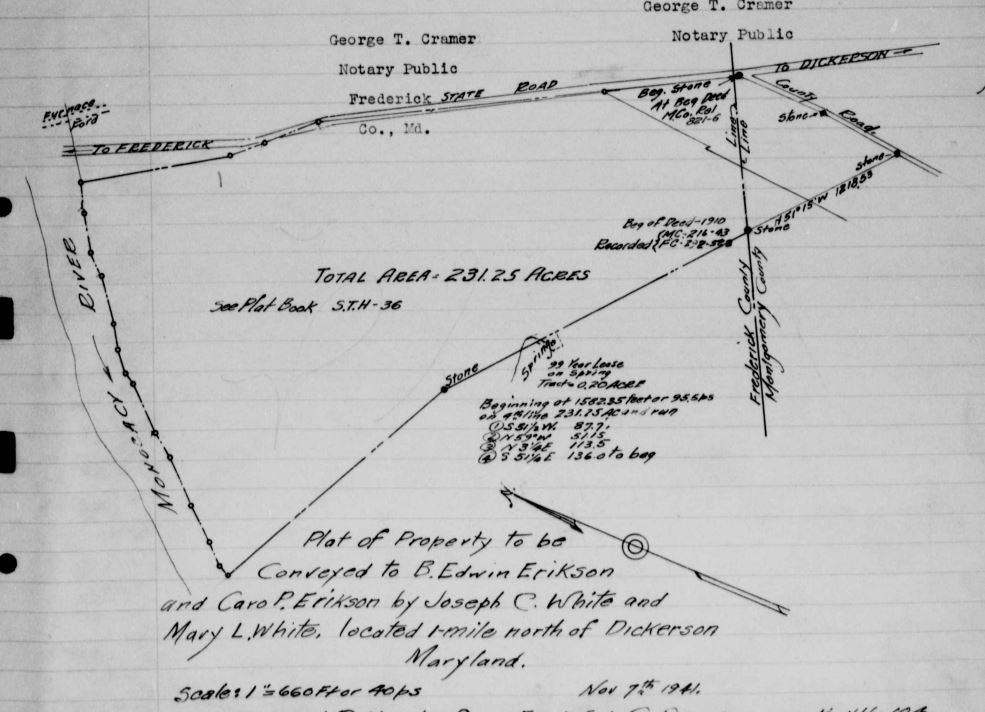 George T. Cramer
Notary Public
George T. Cramer
Notary Public
Frederick
Co., Md.
STATE ROAD
TO DICKERSON
TO FREDERICK
Furnace
Ford
Beg. Stone
At Beg Deed
M.Co. Rol
821-6
County Road
Stone
Stone
Line
Line
N 51° 15' W 1218.53
Beg of Deed-1910
Recorded { MC-216-43
Stone
Frederick County
Montgomery County
MONOCACY RIVER
TOTAL AREA = 231.25 ACRES
See Plat Book S.T.H-36
Stone
Spring
99 Year Lease
on Spring
Tract = 0.20 ACRE
Beginning at 1582.35 feet or 95.9ps
on 4th line 231.25 Ac and run
① S 51½ W. 87.7.
② N 59° W 51.15
③ N 3¼ E 113.5
④ S 51¼ E 136.0 to beg
N
Plat of Property to be
Conveyed to B. Edwin Erikson
and Caro P. Erikson by Joseph C. White and
Mary L. White, located 1-mile north of Dickerson
Maryland.
Scale: 1"=660 Ft or 40 ps
Nov 7th 1941.